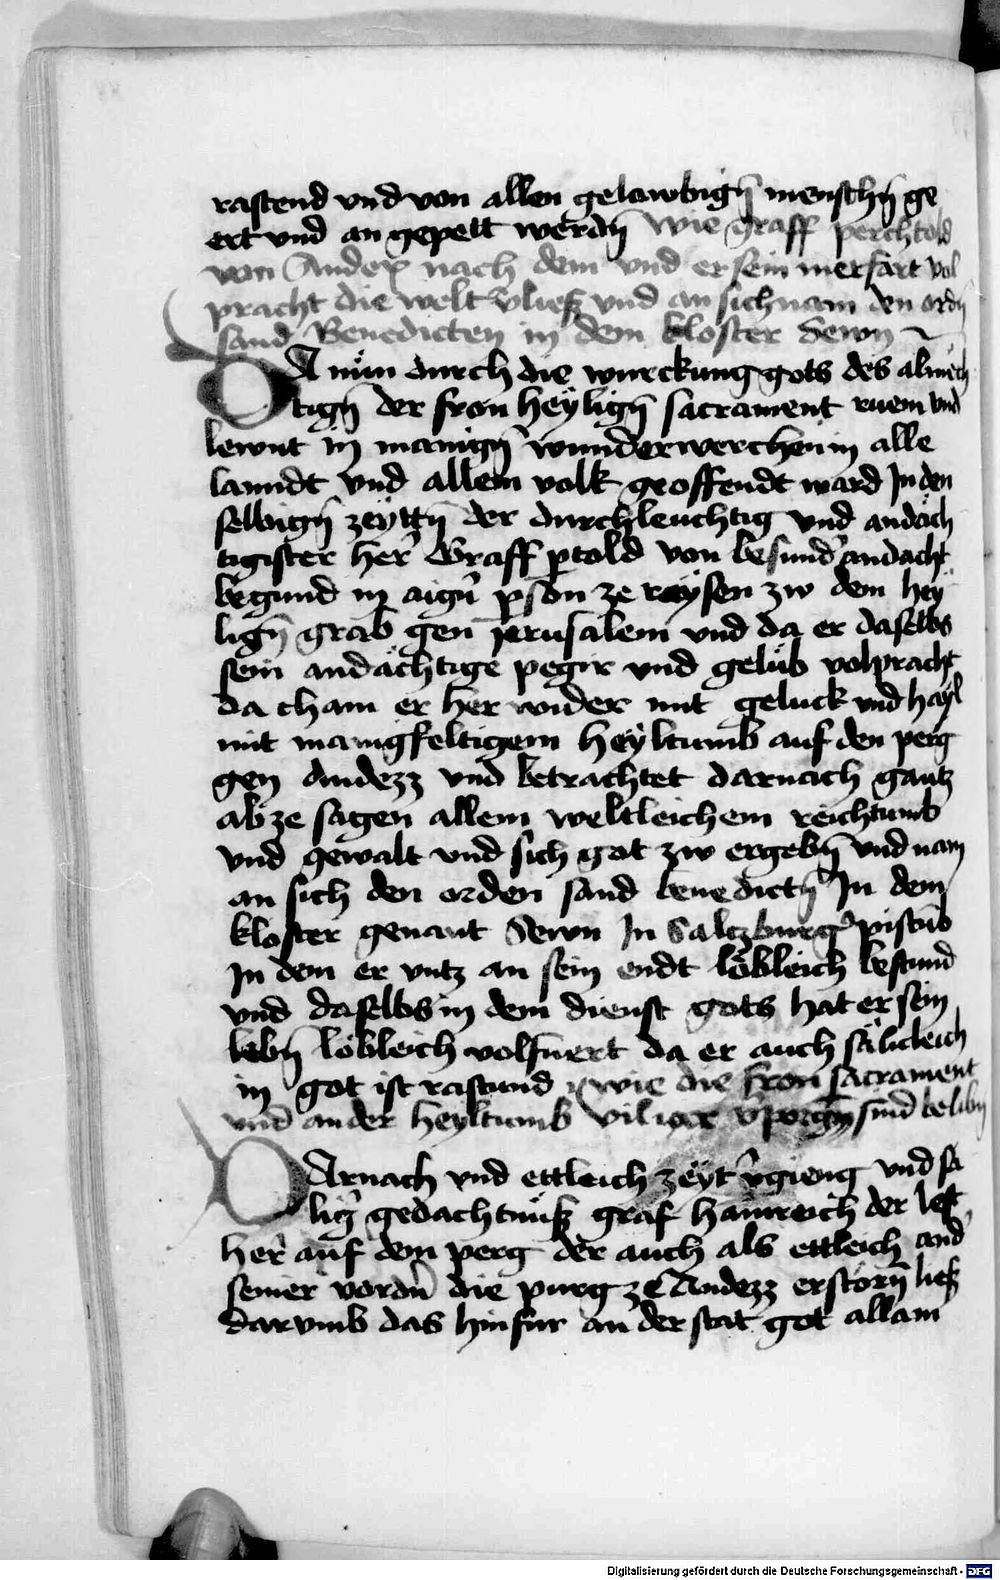 rastend vnd von allen gelawbigñ menschñ ge
ert vnd an gepett werdñ Wie Graff perchtold
von Andex nach dem vnd er sein merfart vol
pracht die welt vließ vnd an sich nam den ordñ
sand Benedicten in dem kloster Sewn
DA nün durch die wurckung gots des almëch
tigñ der fron heÿligñ sacrament ruem vnd
lewnt in manigñ wunderwerchen in alle
lanndt vnd allem volk geoffendt ward In den
selbigñ zeÿttñ der durchleuchtig vnd andäch
tigister her Graff ptold von besund andacht
begund in aigñ pson ze raÿsen zw dem heÿ
ligñ grab gen Jerusalem vnd da er daselbs
sein andächtige pegir vnd gelüb volpracht
da cham er her wider mit geluck vnd hayl
mit manigfeltigem heÿltumb auf den perg
gen Andezz vnd betrachtet darnach gantz
ab ze sagen allem weltleichem reichtumb
vnd gewalt vnd sich got zw ergebñ vnd nam
an sich den orden sand benedictñ In dem
kloster genant Sewn In Saltzburg pistūb
In dem er vntz an sein endt löbleich bestund
vnd daselbs in dem dienst gots hat er sein
lebñ löbleich volfuert da er auch sälickleich
in got ist rastund Wie die fron sacrament
vnd ander heyltumb vporgñ sind belibñ
DArnach vnd ettleich zeÿt vgieng vnd sä
ligñ gedachtnüß graf hainreich der lest
her auf dem perg der auch als ettleich and
seiner vordñ die purg ze Andezz erstorñ ließ
darvmb das hinfur an der stat got allain